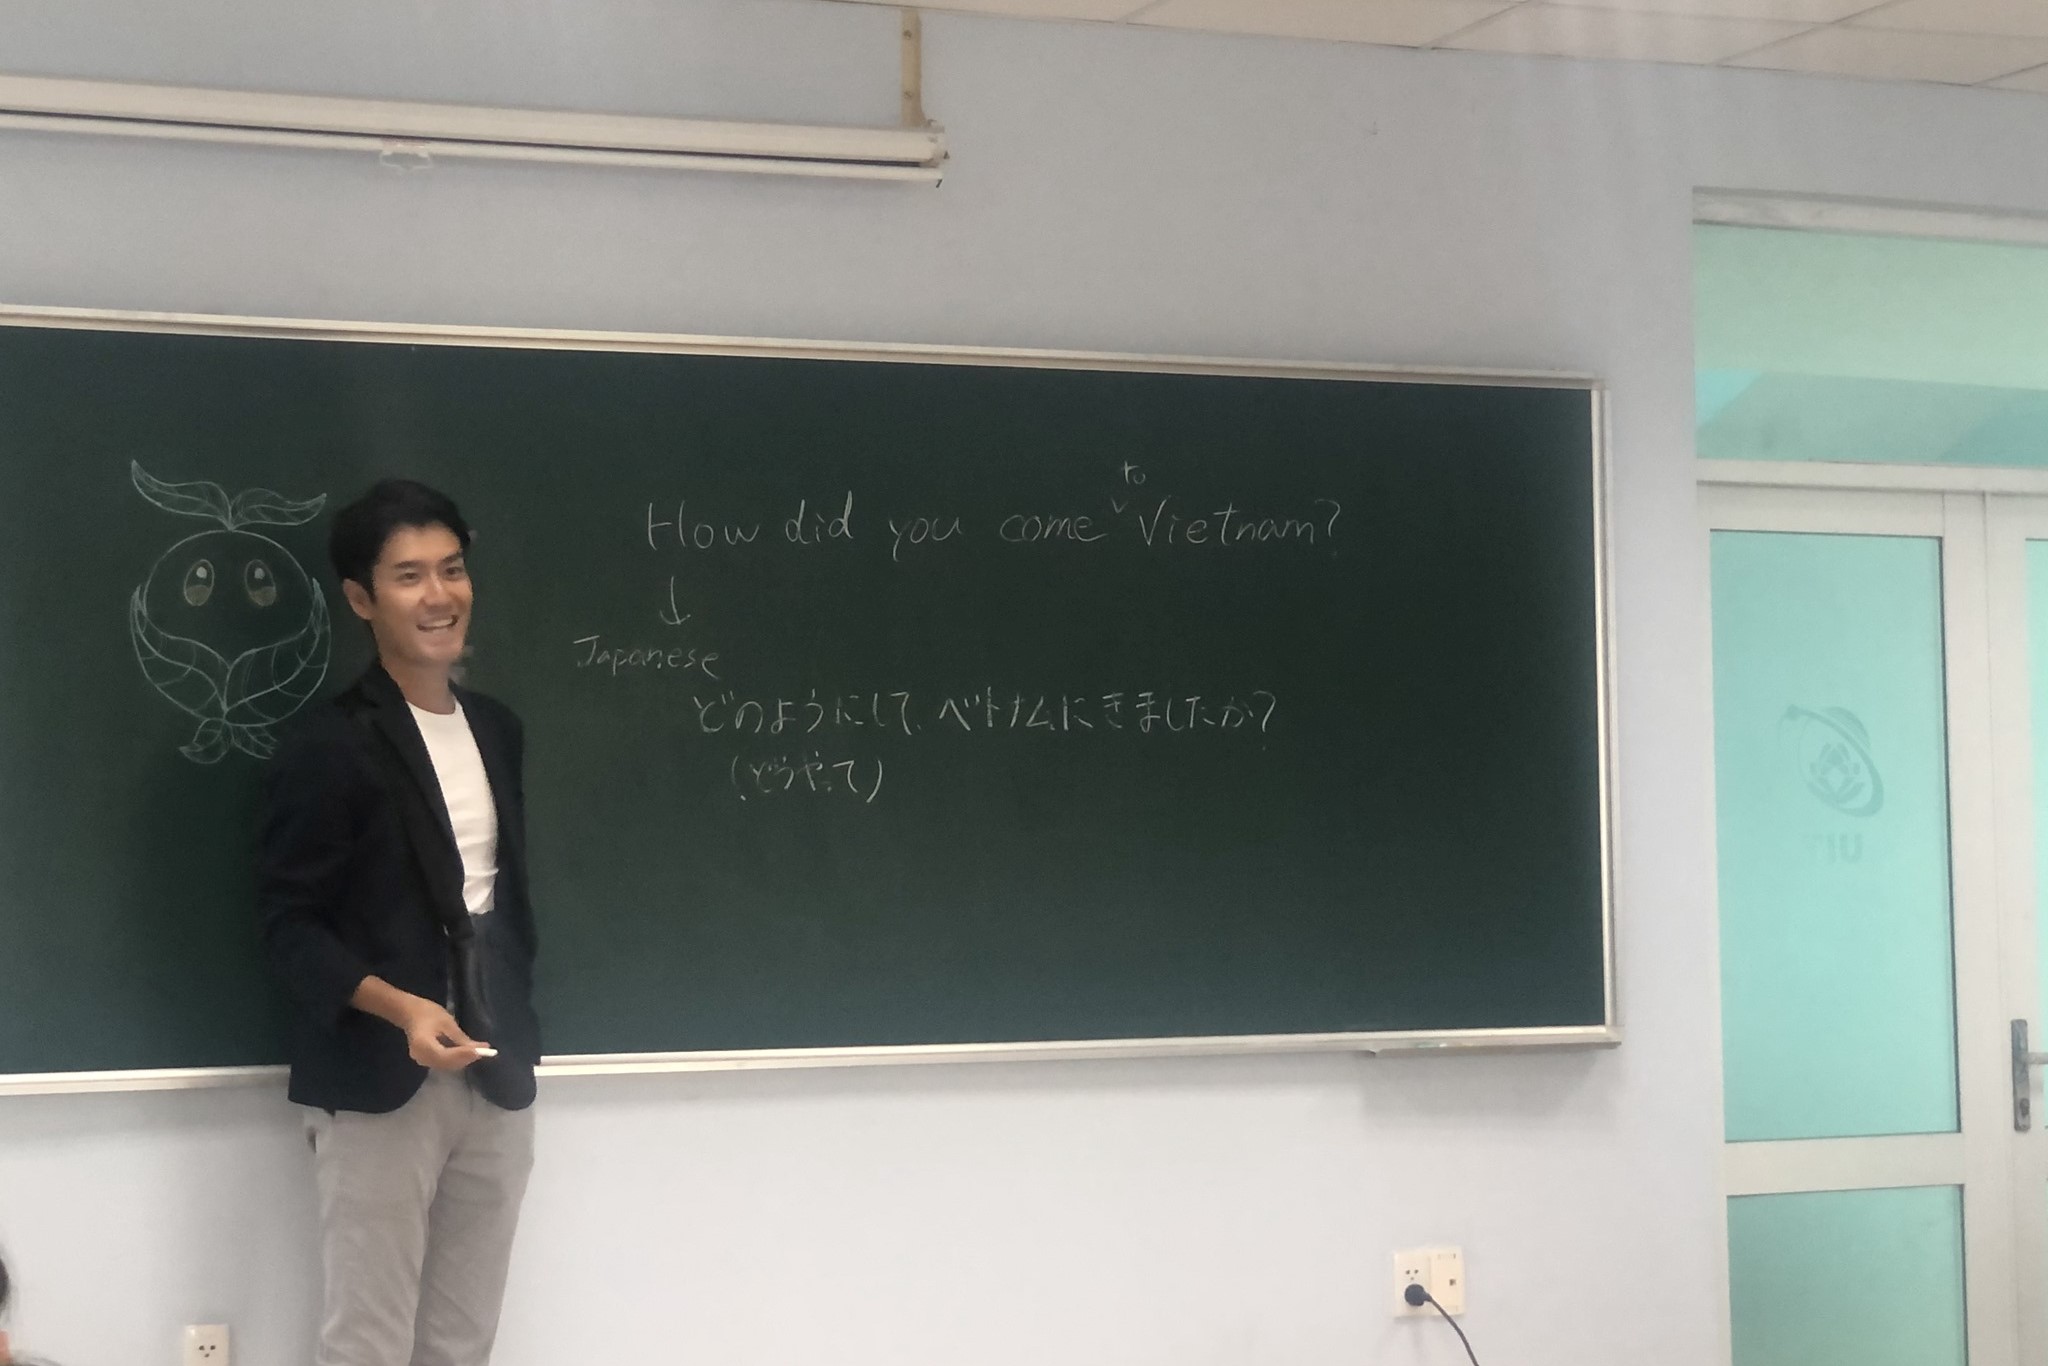 How did you come to Vietnam?
↓
Japanese
どのようにして、ベトナムにきましたか?
(どうやって)
UIT